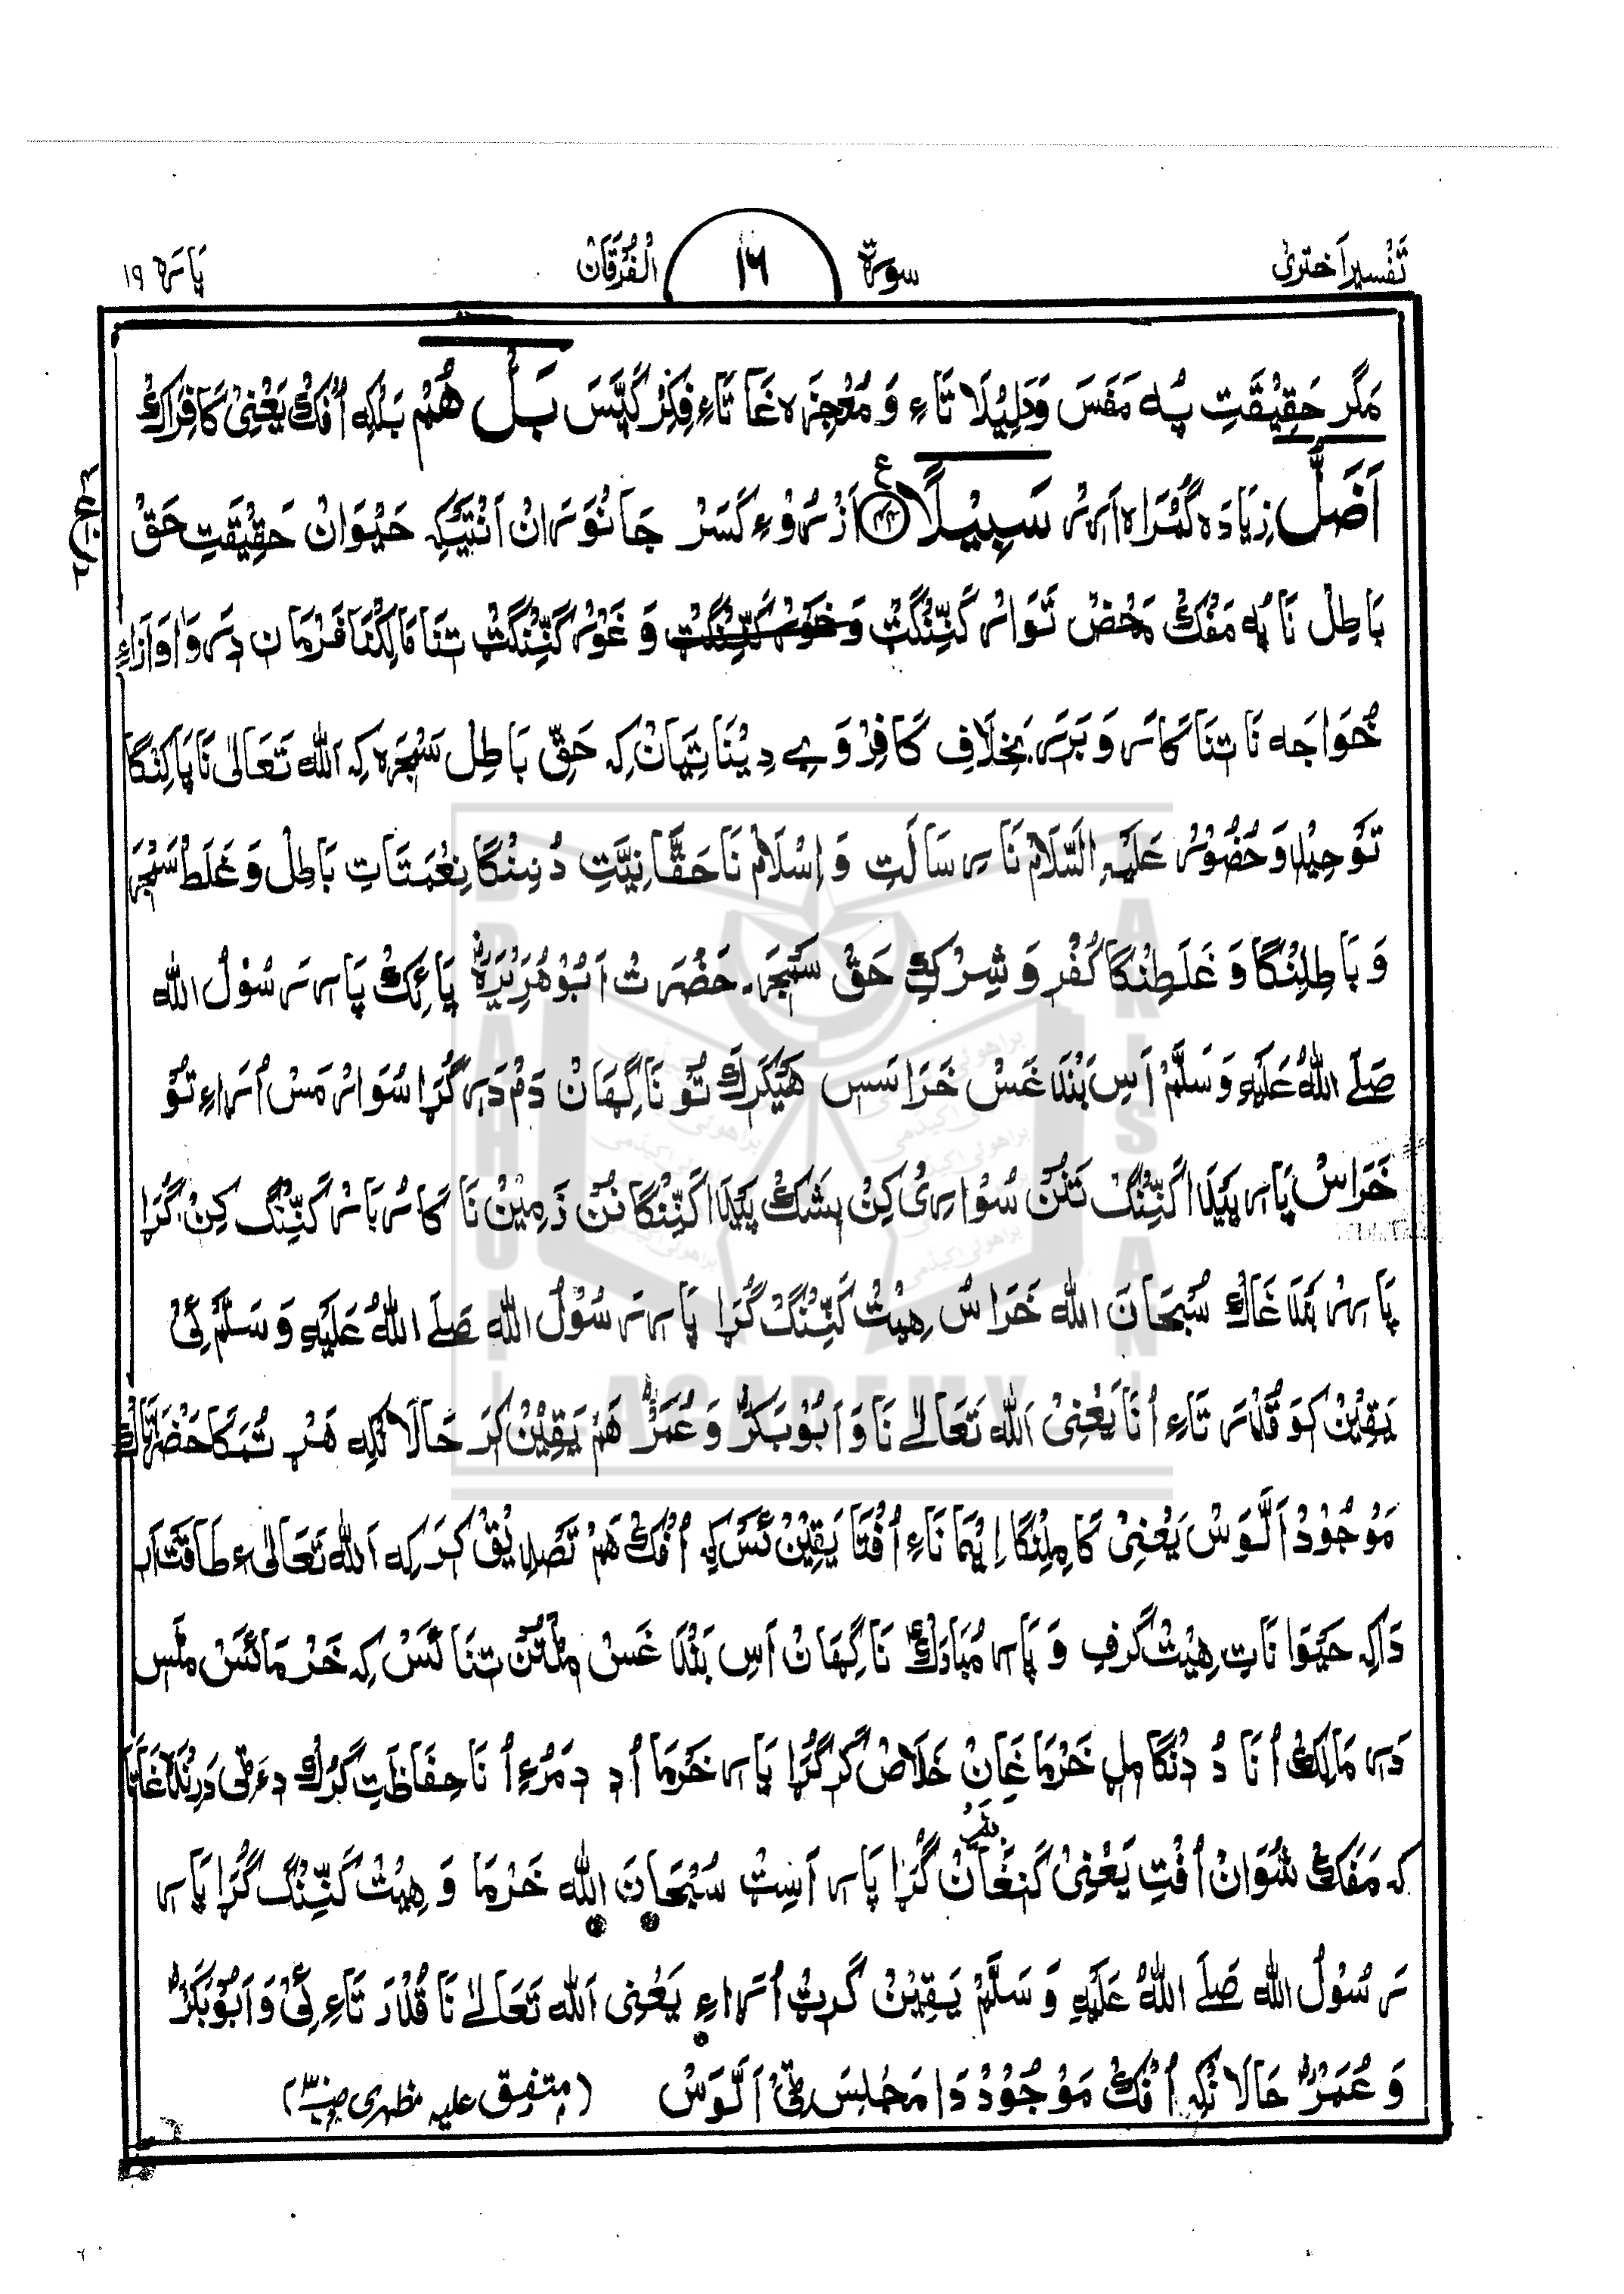 تَفْسیرِ اَختریْ سورة ١٦ الْفُرْقَانْ پَارہ ١٩
مَگَر حَقِیْقَتِ پُہ مَفَسَ وَدَلِیْلَا تَاءِ وَ مُعْجِزَہ غَا تَاءِ فِکِرْ کَپَّسَ بَلْ هُمْ بَلْکِہ اُفکْ یَعْنِیْ کَافِرَاکْ
اَضَلُّ زِیَادَہ گُمْرَاہ اَرِرْ سَبِيْلًا ٤٤ اَزْ رُوْءِ کَسَرْ جَانْوَرَانْ اَنْتَیْکِہ حَیْوَانْ حَقِیْقَتِ حَقْ
بَاطِلْ نَا پُہ مَفْکْ مَحْضْ تَوَارْ کَنِّنْگٹْ وَ غَوْرْ کَنِّنْگٹْ تِنَا مَالِکْنَا فَرْمَان دِرَ وَاوَازَاءِ
خُوَاجَہ نَا تِنَا کَارَ وَ بَرَرَ بَخِلَافِ کَافِرْ وَ بے دِیْنَا تِیَانْ کِہ حَقِّ بَاطِلْ سَمْجَرَہ کِہ اَللہ تَعَالیٰ نَا پَاکِنْگَا
تَوْحِیْد وَ حُضُوْرْ عَلَیْہِ السَّلَامْ نَا رِسَالَتِ وَ اِسْلَامْ نَا حَقَّانِیَّتِ دُنِنْگَا نِعْمَتَاتِ بَاطِلْ وَ غَلَطْ سَمْجَرَ
وَ بَاطِلِنْگَا وَ غَلَطِنْگَا کُفْرِ وَ شِرْکِ حَقْ سَمْجَرَ۔ حَضْرَتْ اَبُوْهُرَیْرَہؓ پَائِکْ پَارِ رَسُوْلُ اللہ
صَلَّے اللہُ عَلَیْہِ وَسَلَّمْ اَسِ بَنْدَ غَسْ خَرَاسَسِ هَکَّرَکْ تُوْ نَاگِہَانْ دَمْ دَرِ گُرَا سُوَارْ مَسْ اُرَاءِ تُوْ
خَرَاسْ پَارِ پَیْدَا کَنِّنْگْ تَنُنْ سُوَارِیْ کِنْ بِشَکْ پَیْدَا کَنِّنْگَا نُنْ زَمِیْنْ نَا کَارْبَارْ کَنِّنْگ کِنْ گُرَا
پَارِرْ بَنْدَ غَاکْ سُبْحَانَ اللہ خَرَاسْ هِیْتْ کَنِّنْگ گُرَا پَارِ رَسُوْلُ اللہ صَلَّے اللہُ عَلَیْہِ وَ سَلَّمْ اِیْ
یَقِیْنْ کِوَ قُدْرَ تَاءِ اُنَا یَعْنِیْ اَللہ تَعَالیٰ نَا وَ اَبُوْبَکَرْؓ وَ عُمَرْؓ هَمْ یَقِیْنْ کِرَ حَالَانْکِہ هَرْ تُمَکَا حَضْرَاتَاکْ
مَوْجُوْدْ اَلَّوَسْ یَعْنِیْ کَامِلِنْگَا اِیْمَانَاءِ اُفْتَا یَقِیْنْ ئَسْ کِہ اُفْکْ هَمْ تَصْدِیْقْ کِرَ کِہ اَللہ تَعَالیٰءِ طَاقَتْ اَرِ
دَاکِہ حَیْوَانَاتِ هِیْتْ کَرِفِ وَ پَارِ مُبَارَکْ نَاگِہَانْ اَسِ بَنْدَ غَسْ مِلْتُنْ تِنَا ئَسْ کِہ خَرْمَائَسْ مَلَّسِ
دَرِ مَالِکْ اُنَا دُ دُنْگَا مِلِ خَرْمَاغَانْ خَلَاصْ کَرِ گُرَا پَارِ خَرْمَا اُدِ دَمَرْءِ اُنَا حِفَاظَتِ کَرُکْ دءَٹِیْ دَرِنْدَغَاتَا
کِہ مَفَکْ شُوَانْ اُفْتِ یَعْنِیْ کَنِغَانْ بَغَیْر گُرَا پَارِ اَسِٹْ سُبْحَانَ اللہ خَرْمَا وَ هِیْتْ کَنِّنْگ گُرَا پَارِ
رَسُوْلُ اللہ صَلَّے اللہُ عَلَیْہِ وَ سَلَّمْ یَقِیْنْ کَرِٹْ اُرَاءِ یَعْنِی اَللہ تَعَالیٰ نَا قُدْرَ تَاءِ اِیْ وَ اَبُوْبَکَرْؓ
وَ عُمَرْؓ حَالَانْکِہ اُفْکْ مَوْجُوْدْ دَا مَجْلِسَ ٹِیْ اَلَّوَسْ (متفق علیہ مظہری)